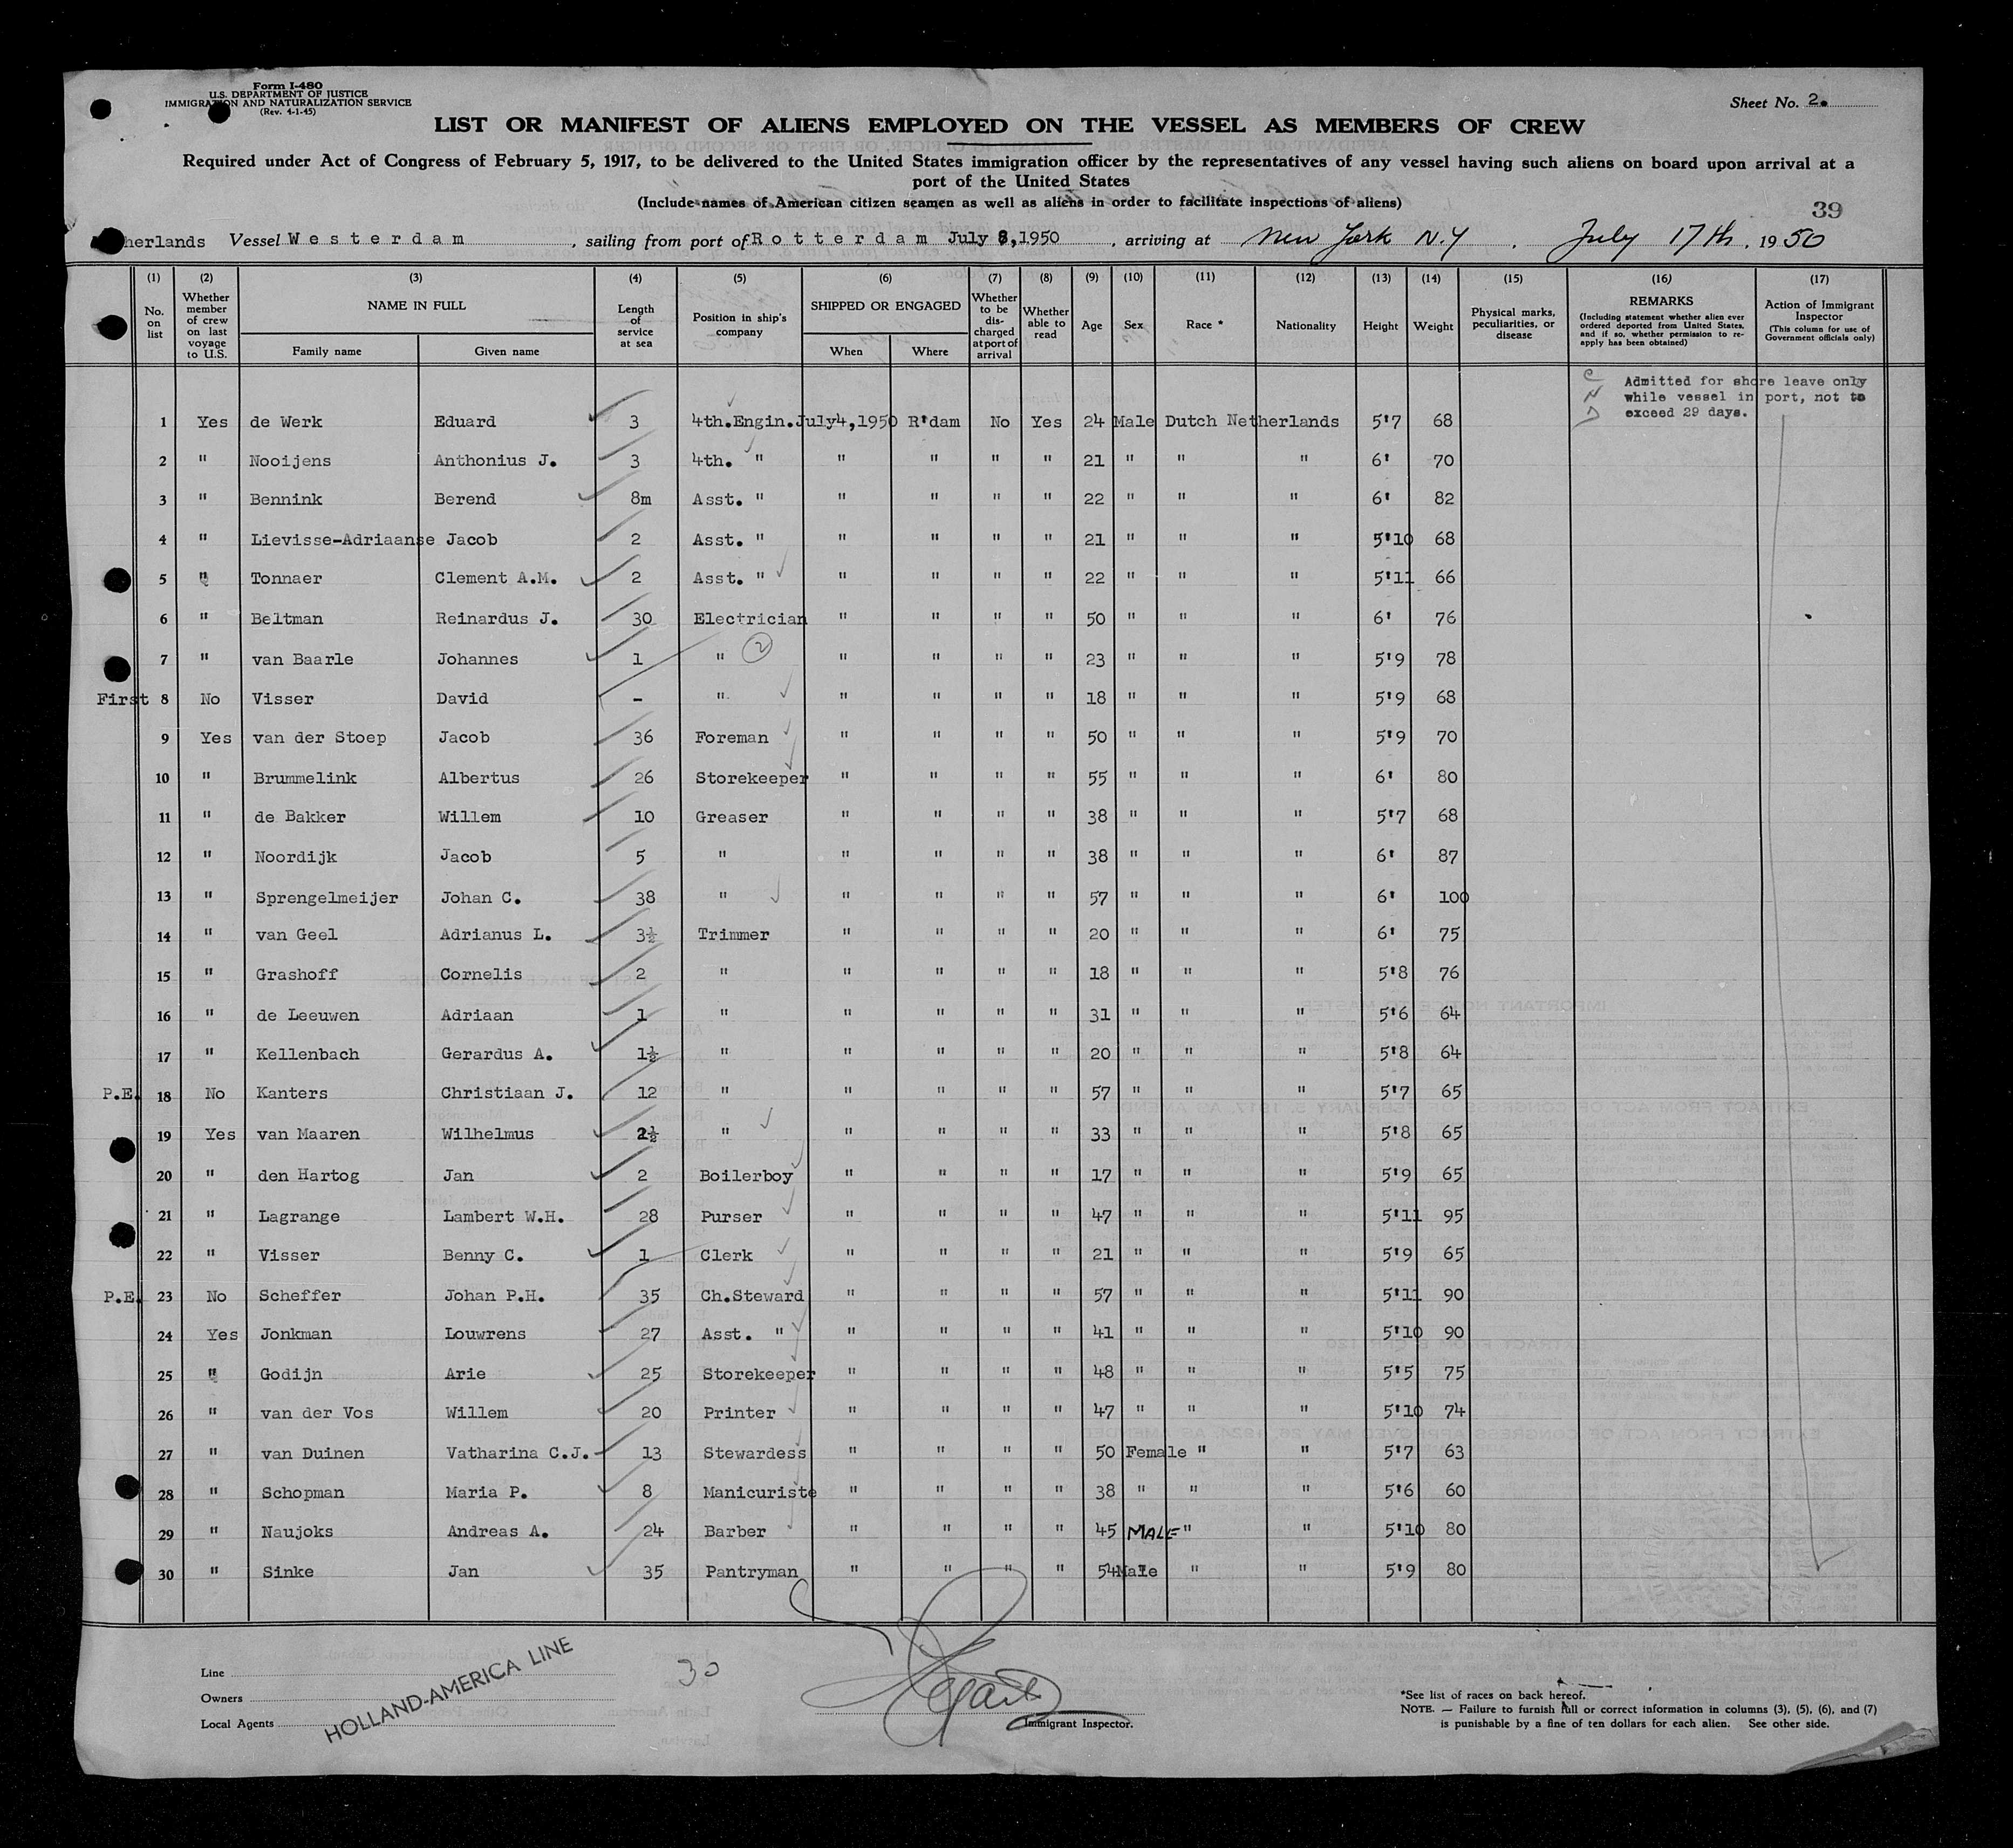 Form I-480
U.S. DEPARTMENT OF JUSTICE
IMMIGRATION AND NATURALIZATION SERVICE
(Rev. 4-1-45)
Sheet No. 2.
LIST OR MANIFEST OF ALIENS EMPLOYED ON THE VESSEL AS MEMBERS OF CREW
Required under Act of Congress of February 5, 1917, to be delivered to the United States immigration officer by the representatives of any vessel having such aliens on board upon arrival at a
port of the United States
(Include names of American citizen seamen as well as aliens in order to facilitate inspections of aliens)
39
herlands Vessel Westerdam, sailing from port of Rotterdam July 8, 1950, arriving at New York N.Y. July 17th, 1950
(1) (2) (3) (4) (5) (6) (7) (8) (9) (10) (11) (12) (13) (14) (15) (16) (17)
No. on list
Whether member of crew on last voyage to U.S.
NAME IN FULL
Family name
Given name
Length of service at sea
Position in ship's company
SHIPPED OR ENGAGED
When
Where
Whether to be discharged at port of arrival
Whether able to read
Age
Sex
Race *
Nationality
Height
Weight
Physical marks, peculiarities, or disease
REMARKS
(Including statement whether alien ever ordered deported from United States, and if so, whether permission to re-apply has been obtained)
Action of Immigrant Inspector
(This column for use of Government officials only)
Admitted for shore leave only
while vessel in port, not to
exceed 29 days.
1 Yes de Werk Eduard 3 4th.Engin. July4,1950 R'dam No Yes 24 Male Dutch Netherlands 5'7 68
2 " Nooijens Anthonius J. 3 4th. " " " " " 21 " " " 6' 70
3 " Bennink Berend 8m Asst. " " " " " 22 " " " 6' 82
4 " Lievisse-Adriaanse Jacob 2 Asst. " " " " " 21 " " " 5'10 68
5 " Tonnaer Clement A.M. 2 Asst. " " " " " 22 " " " 5'11 66
6 " Beltman Reinardus J. 30 Electrician " " " " 50 " " " 6' 76
7 " van Baarle Johannes 1 " 2 " " " " 23 " " " 5'9 78
First 8 No Visser David - " " " " " 18 " " " 5'9 68
9 Yes van der Stoep Jacob 36 Foreman " " " " 50 " " " 5'9 70
10 " Brummelink Albertus 26 Storekeeper " " " " 55 " " " 6' 80
11 " de Bakker Willem 10 Greaser " " " " 38 " " " 5'7 68
12 " Noordijk Jacob 5 " " " " " 38 " " " 6' 87
13 " Sprengelmeijer Johan C. 38 " " " " " 57 " " " 6' 100
14 " van Geel Adrianus L. 3½ Trimmer " " " " 20 " " " 6' 75
15 " Grashoff Cornelis 2 " " " " " 18 " " " 5'8 76
16 " de Leeuwen Adriaan 1 " " " " " 31 " " " 5'6 64
17 " Kellenbach Gerardus A. 1½ " " " " " 20 " " " 5'8 64
P.E. 18 No Kanters Christiaan J. 12 " " " " " 57 " " " 5'7 65
19 Yes van Maaren Wilhelmus 2½ " " " " " 33 " " " 5'8 65
20 " den Hartog Jan 2 Boilerboy " " " " 17 " " " 5'9 65
21 " Lagrange Lambert W.H. 28 Purser " " " " 47 " " " 5'11 95
22 " Visser Benny C. 1 Clerk " " " " 21 " " " 5'9 65
P.E. 23 No Scheffer Johan P.H. 35 Ch.Steward " " " " 57 " " " 5'11 90
24 Yes Jonkman Louwrens 27 Asst. " " " " " 41 " " " 5'10 90
25 " Godijn Arie 25 Storekeeper " " " " 48 " " " 5'5 75
26 " van der Vos Willem 20 Printer " " " " 47 " " " 5'10 74
27 " van Duinen Vatharina C.J. 13 Stewardess " " " " 50 Female " " 5'7 63
28 " Schopman Maria P. 8 Manicuriste " " " " 38 " " " 5'6 60
29 " Naujoks Andreas A. 24 Barber " " " " 45 MALE " " 5'10 80
30 " Sinke Jan 35 Pantryman " " " " 54 Male " " 5'9 80
Line
Owners
Local Agents
HOLLAND-AMERICA LINE
30
Immigrant Inspector.
*See list of races on back hereof.
NOTE. — Failure to furnish full or correct information in columns (3), (5), (6), and (7)
is punishable by a fine of ten dollars for each alien. See other side.